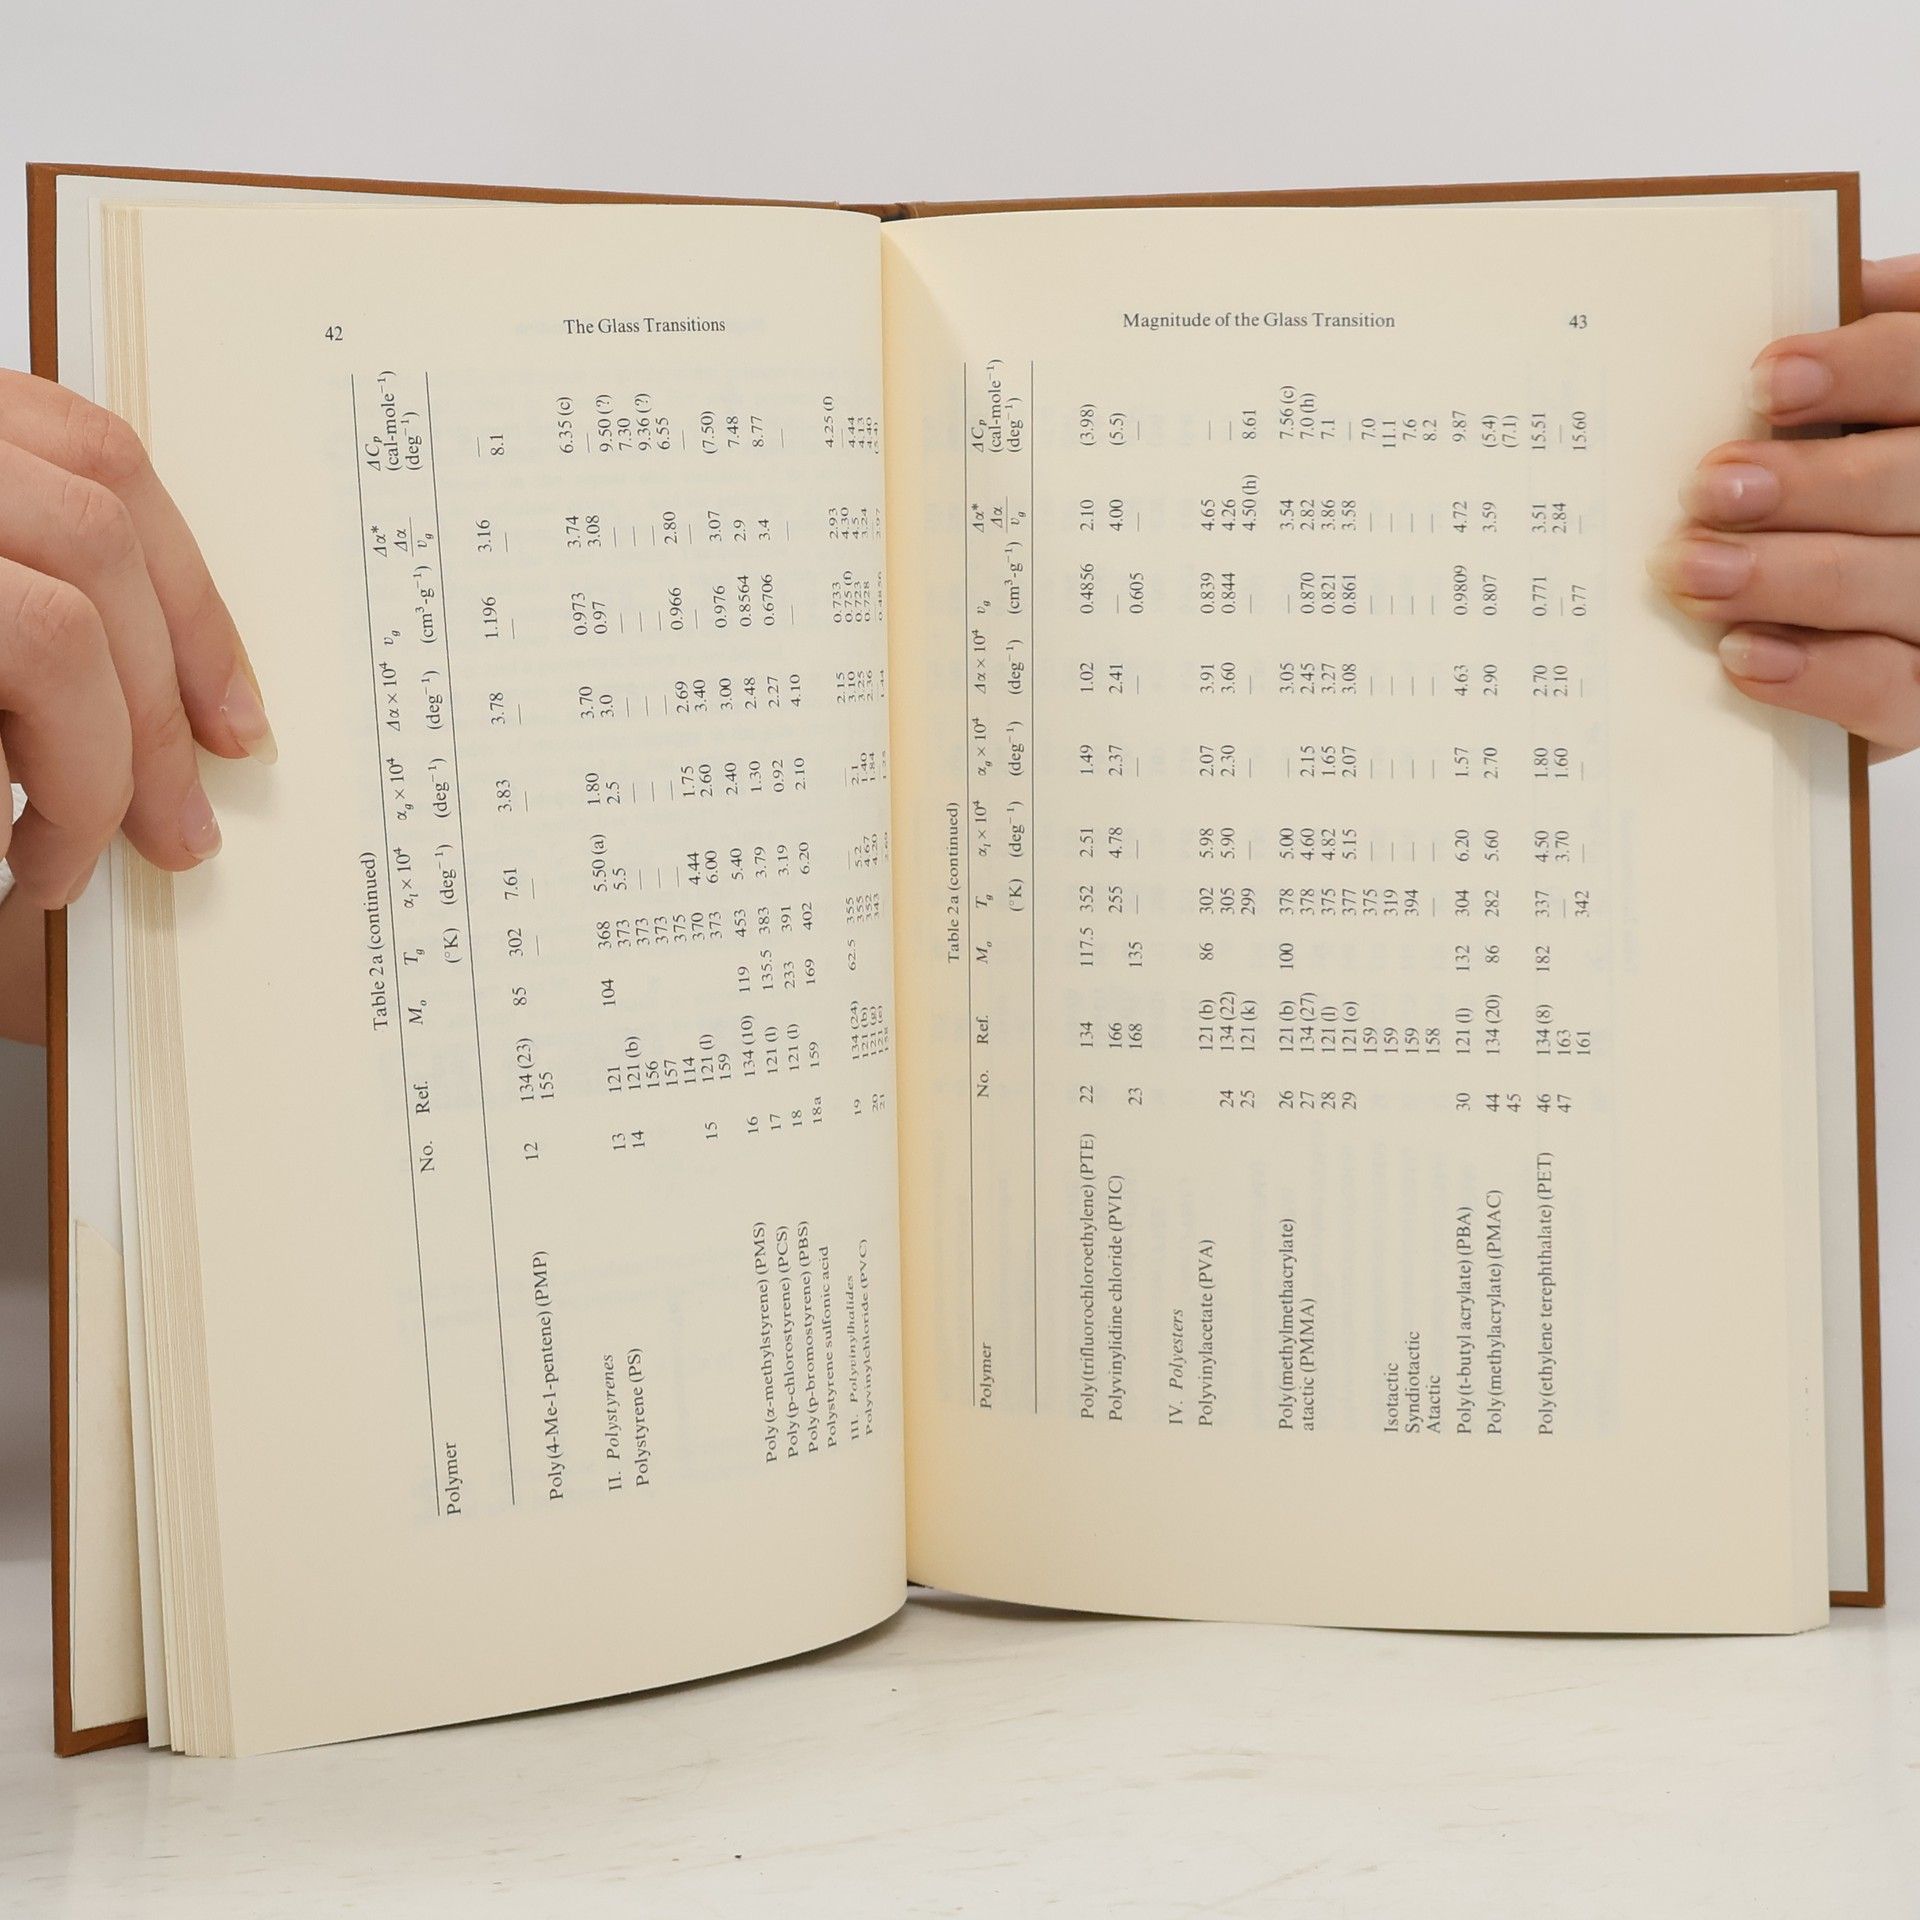 42
The Glass Transitions
Table 2a (continued)
Polymer No. Ref. Mₒ T_g α_l × 10⁴ α_g × 10⁴ Δα × 10⁴ v_g Δα* ΔC_p
(°K) (deg⁻¹) (deg⁻¹) (deg⁻¹) (cm³-g⁻¹) Δα/v_g (cal-mole⁻¹) (deg⁻¹)
Poly(4-Me-1-pentene) (PMP) 12 134 (23) 85 302 7.61 3.83 3.78 1.196 3.16 —
155 — — — — — — 8.1
II. Polystyrenes
Polystyrene (PS) 13 121 104 368 5.50 (a) 1.80 3.70 0.973 3.74 6.35 (c)
14 121 (b) 373 5.5 2.5 3.0 0.97 3.08 —
156 373 — — — — — 9.50 (?)
157 373 — — — — — 7.30
114 375 — — — — — 9.36 (?)
15 121 (l) 370 4.44 1.75 2.69 0.966 2.80 6.55
159 373 6.00 2.60 3.40 — —
Poly(α-methylstyrene) (PMS) 16 134 (10) 119 453 5.40 2.40 3.00 0.976 3.07 (7.50)
Poly(p-chlorostyrene) (PCS) 17 121 (l) 135.5 383 3.79 1.30 2.48 0.8564 2.9 7.48
Poly(p-bromostyrene) (PBS) 18 121 (l) 233 391 3.19 0.92 2.27 0.6706 3.4 8.77
Polystyrene sulfonic acid 18a 159 169 402 6.20 2.10 4.10 — — —
III. Polyvinylhalides
Polyvinylchloride (PVC) 19 134 (24) 62.5 355 — 2.15 0.733 2.93 4.25 (f)
121 (b) 355 5.2 2.1 3.10 0.75 (f) 4.30 —
20 121 (g) 352 4.67 1.40 3.25 0.723 4.5 4.44
21 343 4.20 1.84 2.36 0.728 3.24 4.13
Magnitude of the Glass Transition
43
Table 2a (continued)
Polymer No. Ref. Mₒ T_g α_l × 10⁴ α_g × 10⁴ Δα × 10⁴ v_g Δα* ΔC_p
(°K) (deg⁻¹) (deg⁻¹) (deg⁻¹) (cm³-g⁻¹) Δα/v_g (cal-mole⁻¹) (deg⁻¹)
Poly(trifluorochloroethylene) (PTE) 22 134 117.5 352 2.51 1.49 1.02 0.4856 2.10 (3.98)
Polyvinylidine chloride (PVIC) 166 255 4.78 2.37 2.41 — 4.00 (5.5)
23 168 135 — — — — 0.605 — —
IV. Polyesters
Polyvinylacetate (PVA) 121 (b) 86 302 5.98 2.07 3.91 0.839 4.65 —
24 134 (22) 305 5.90 2.30 3.60 0.844 4.26 —
25 121 (k) 299 — — — — 4.50 (h) 8.61
Poly(methylmethacrylate) 26 121 (b) 100 378 5.00 — 3.05 — 3.54 7.56 (c)
atactic (PMMA) 27 134 (27) 378 4.60 2.15 2.45 0.870 2.82 7.0 (h)
28 121 (l) 375 4.82 1.65 3.27 0.821 3.86 7.1
29 121 (o) 377 5.15 2.07 3.08 0.861 3.58 —
159 375 — — — — — 7.0
Isotactic 159 319 — — — — — 11.1
Syndiotactic 159 394 — — — — — 7.6
Atactic 158 — — — — — — 8.2
Poly(t-butyl acrylate) (PBA) 30 121 (l) 132 304 6.20 1.57 4.63 0.9809 4.72 9.87
Poly(methylacrylate) (PMAC) 44 134 (20) 86 282 5.60 2.70 2.90 0.807 3.59 (5.4)
45 (7.1)
Poly(ethylene terephthalate) (PET) 46 134 (8) 182 337 4.50 1.80 2.70 0.771 3.51 15.51
47 163 — 3.70 1.60 2.10 — 2.84 —
161 342 — — — 0.77 — 15.60